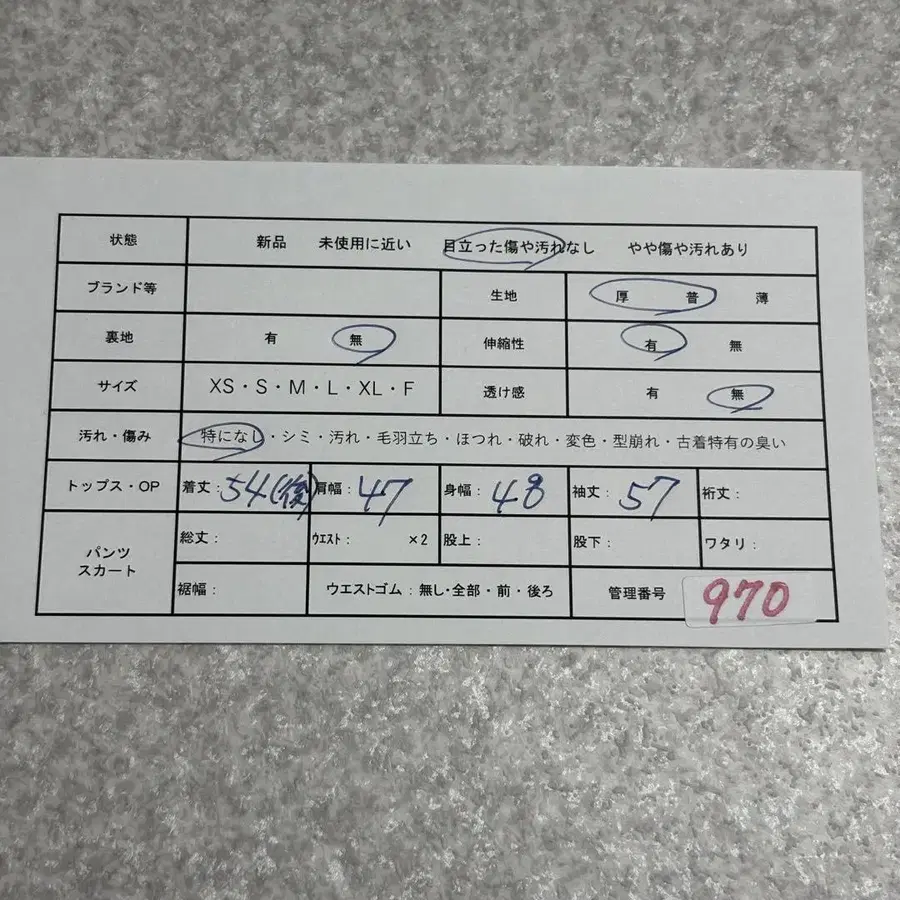 状態 新品 未使用に近い 目立った傷や汚れなし やや傷や汚れあり
ブランド等 生地 厚 普 薄
裏地 有 無 伸縮性 有 無
サイズ XS・S・M・L・XL・F 透け感 有 無
汚れ・傷み 特になし・シミ・汚れ・毛羽立ち・ほつれ・破れ・変色・型崩れ・古着特有の臭い
トップス・OP 着丈：54(後) 肩幅：47 身幅：48 袖丈：57 裄丈：
パンツ
スカート
総丈： ｳｴｽﾄ： ×2 股上： 股下： ワタリ：
裾幅： ウエストゴム：無し・全部・前・後ろ 管理番号 970